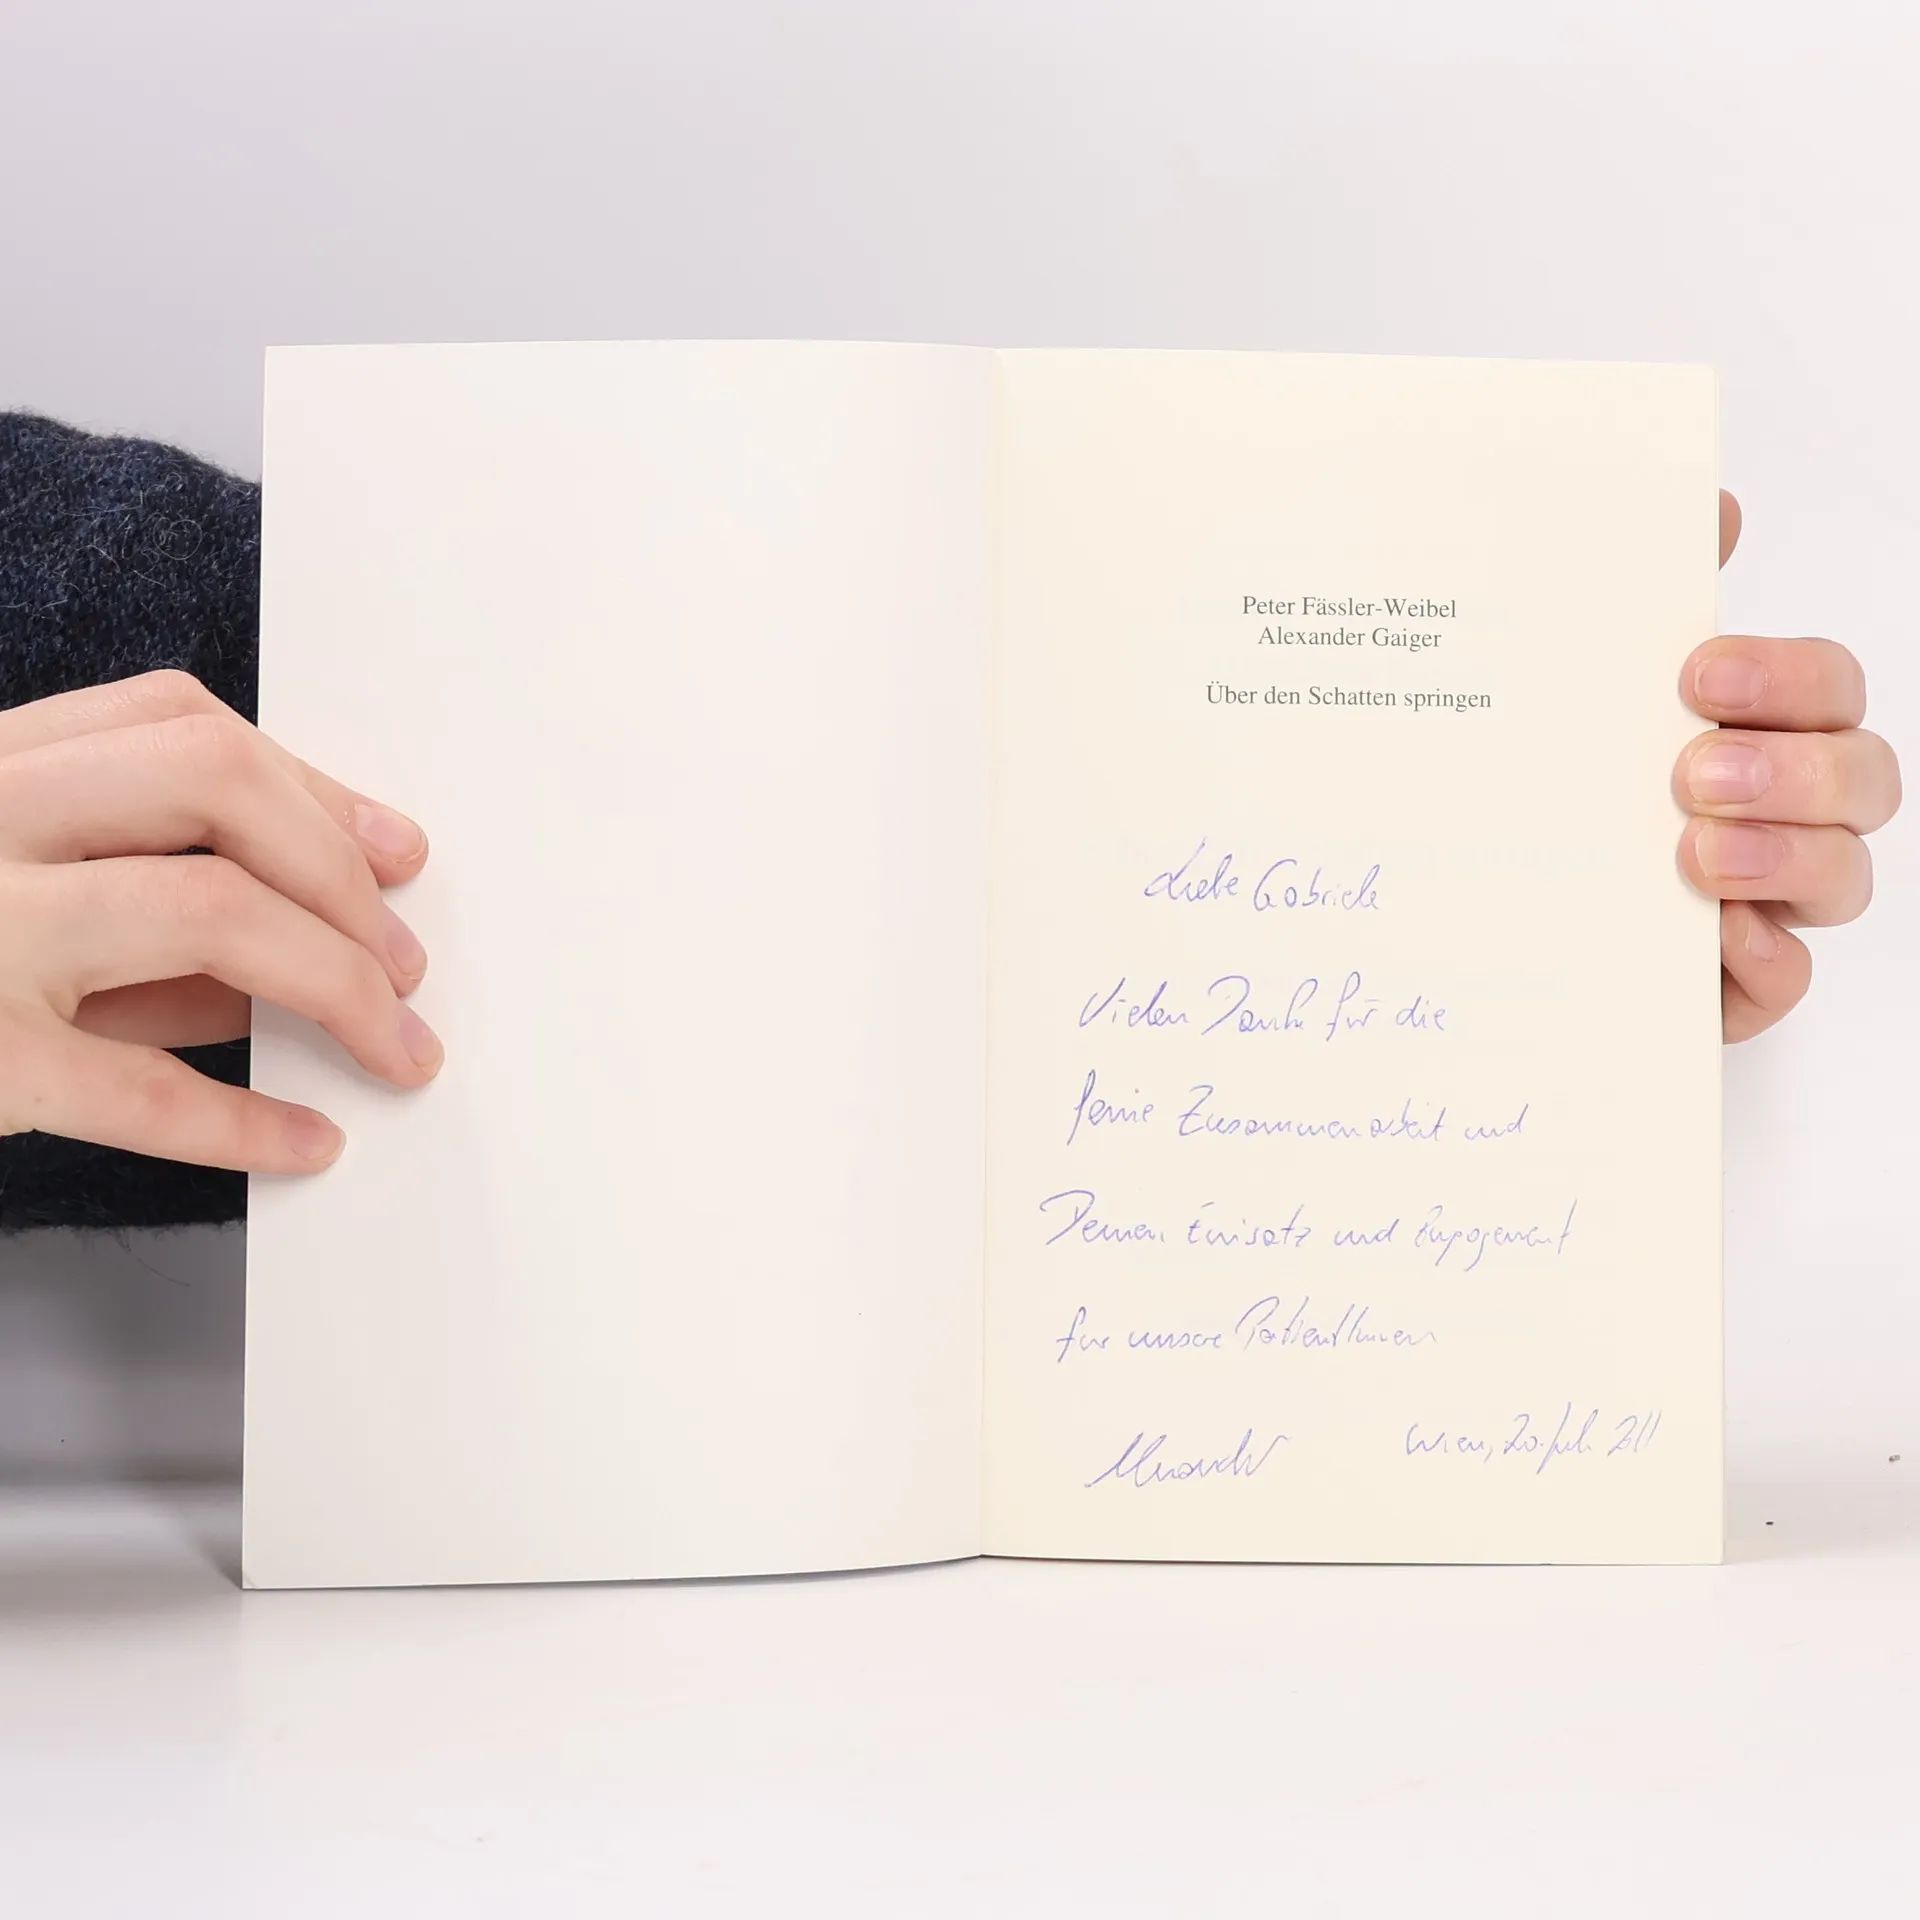 Peter Fässler-Weibel
Alexander Gaiger
Über den Schatten springen
Liebe Gabriele
Vielen Dank für die
feine Zusammenarbeit und
Deinen Einsatz und Engagement
für unsere PatientInnen
Wien, 20. Juli 2011